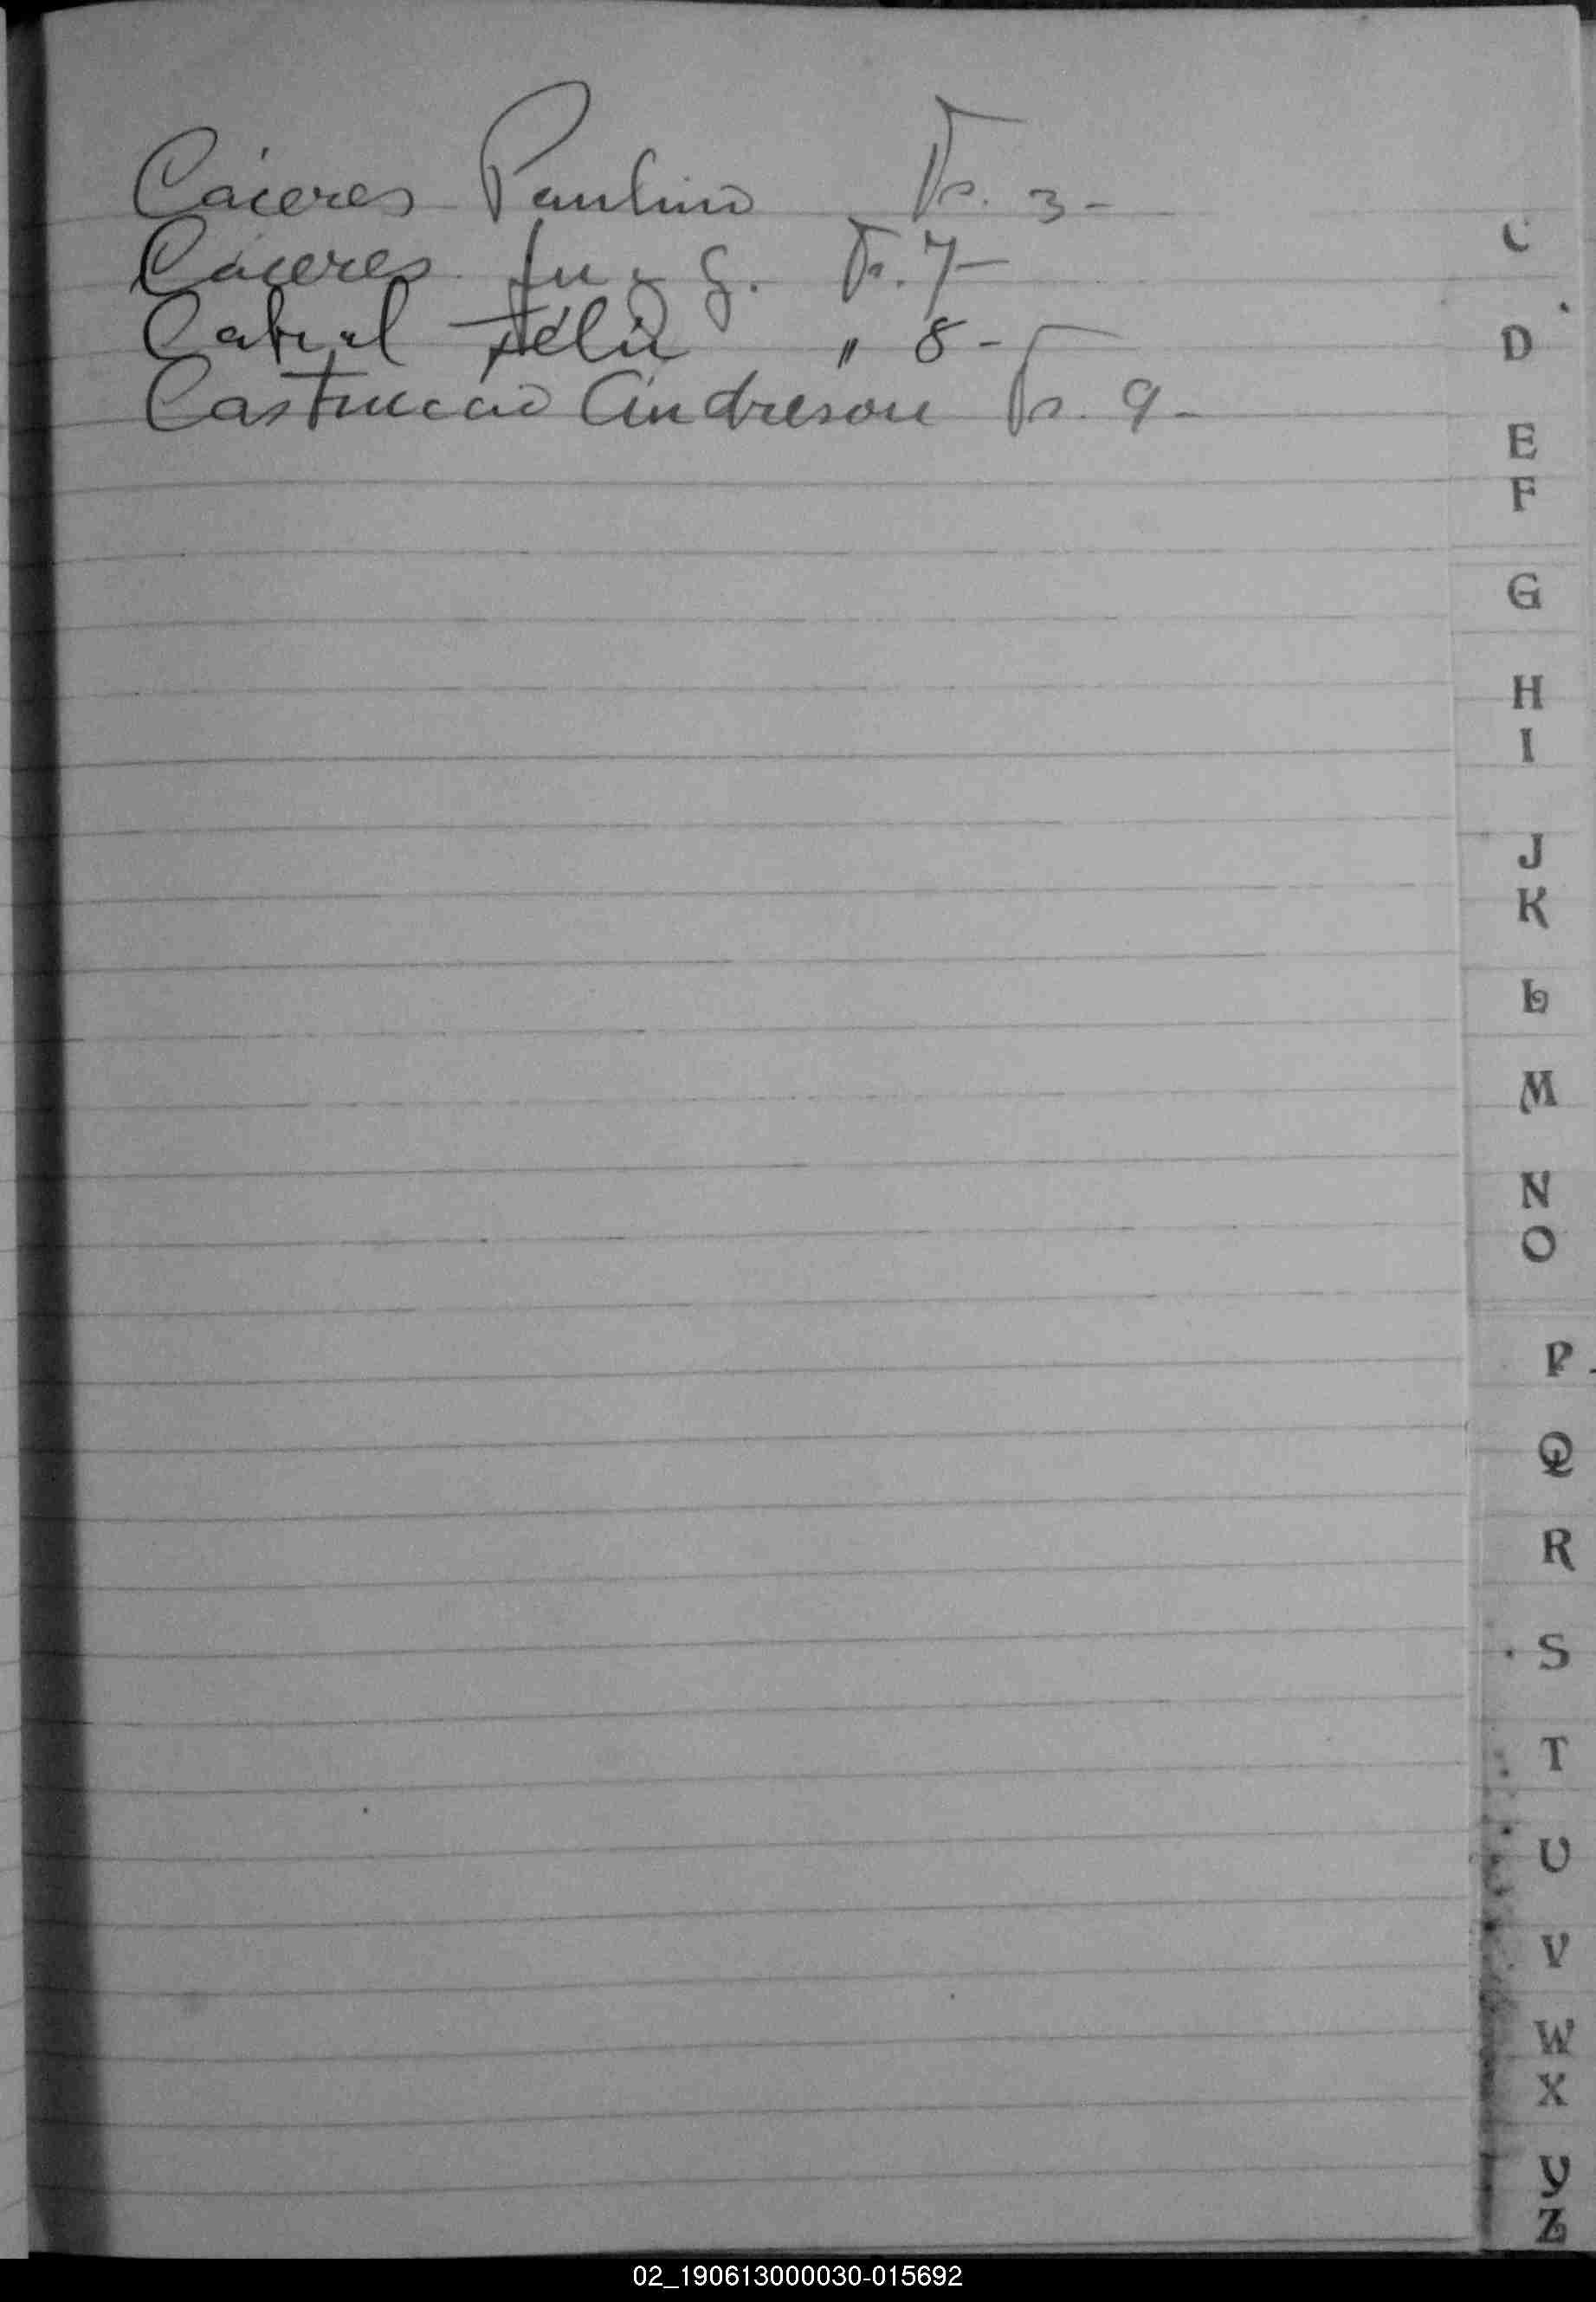 Cáceres Paulino Fs. 3-
Cáceres G. Fs. 7-
Cabral Félix " 8-
Castruccio Andreson Fs. 9-
C
D
E
F
G
H
I
J
K
L
M
N
O
P
Q
R
S
T
U
V
W
X
Y
Z
02_190613000030-015692